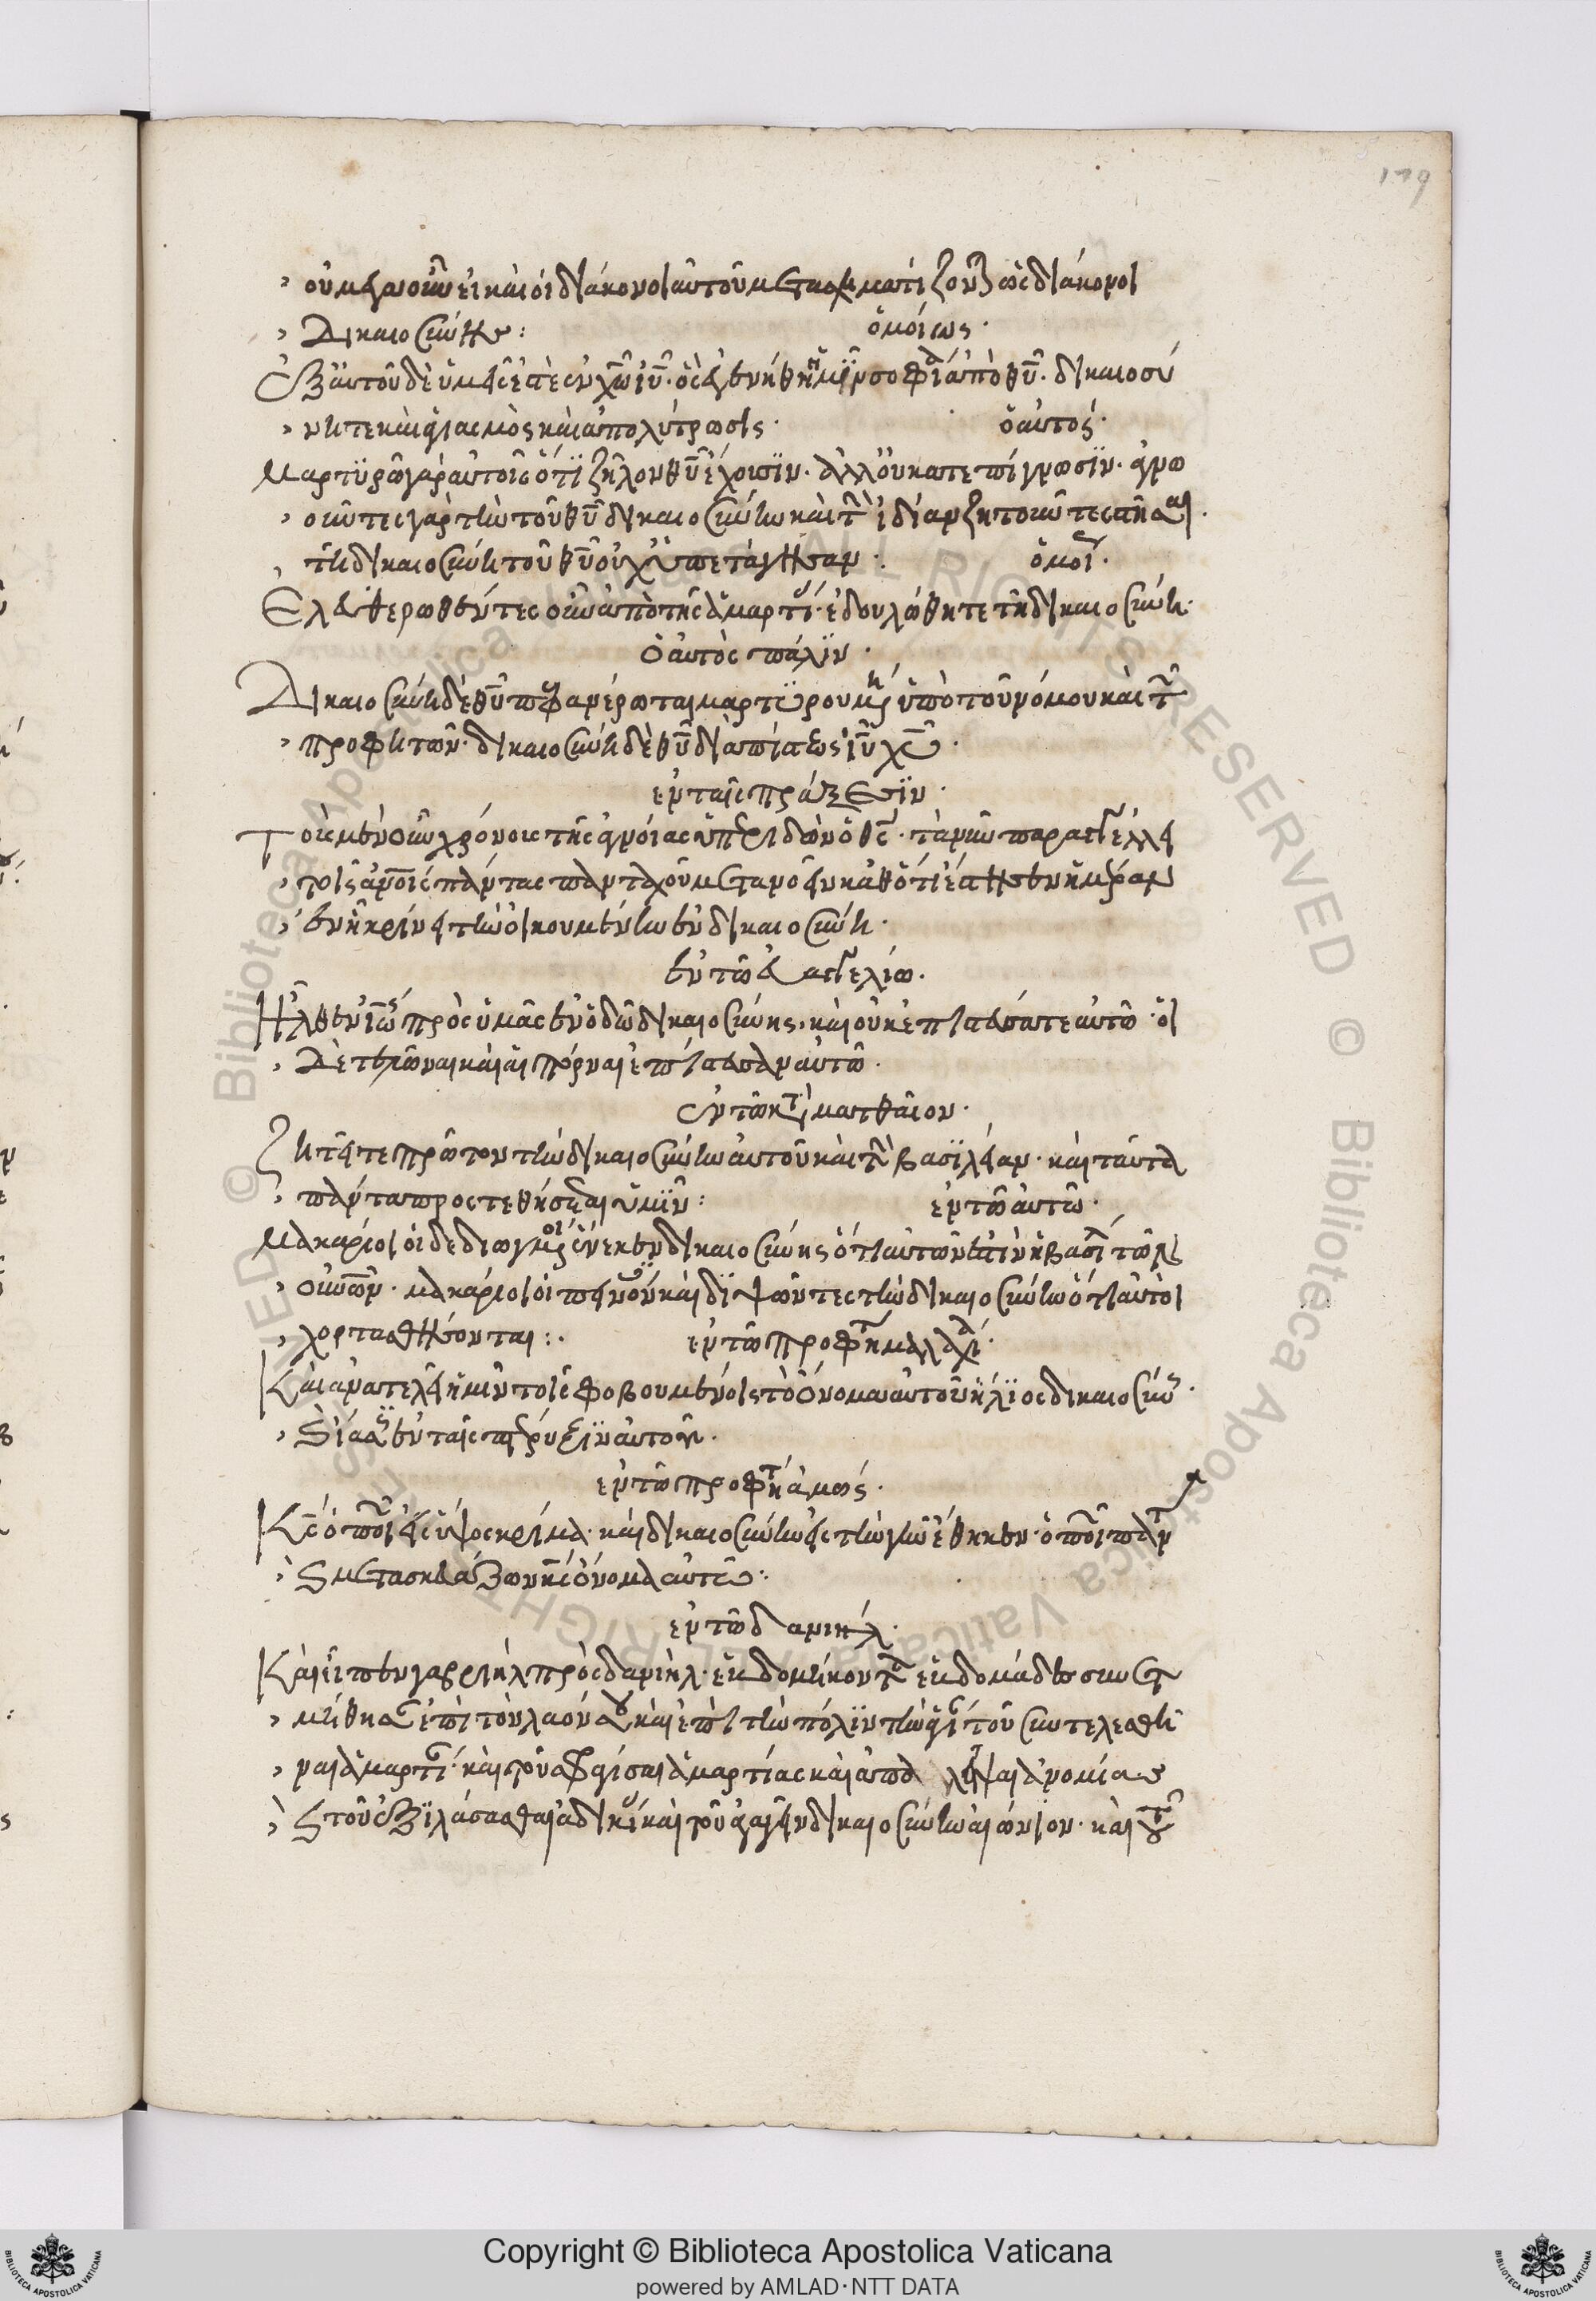 179
οὐ μέγα οὖν εἰ καὶ οἱ διάκονοι αὐτοῦ μετασχηματίζονται ὡς διάκονοι
δικαιοσύνης: ὁμοίως·
Ἐξ αὐτοῦ δὲ ὑμεῖς ἐστὲ ἐν χῶ ἰῦ· ὃς ἐγενήθη ἡμῖν σοφία ἀπὸ θῦ· δικαιοσύ
νη τε καὶ ἁγιασμὸς καὶ ἀπολύτρωσις· ὁ αὐτός·
Μαρτυρῶ γὰρ αὐτοῖς ὅτι ζῆλον θῦ ἔχουσιν· ἀλλ' οὐ κατ' ἐπίγνωσιν· ἀγνο
οῦντες γὰρ τὴν τοῦ θῦ δικαιοσύνην καὶ τὴν ἰδίαν ζητοῦντες στῆσαι·
τῇ δικαιοσύνη τοῦ θῦ οὐχ ὑπετάγησαν· ὁμοί·
Ἐλευθερωθέντες οὖν ἀπὸ τῆς ἁμαρτί· ἐδουλώθητε τῇ δικαιοσύνη·
ὁ αὐτὸς πάλιν·
Δικαιοσύνη δὲ θῦ πεφανέρωται μαρτυρουμένη ὑπὸ τοῦ νόμου καὶ τῶν
προφητῶν· δικαιοσύνη δὲ θῦ διὰ πίστεως ἰῦ χῦ·
ἐν ταῖς πράξεσιν·
Τοὺς μὲν οὖν χρόνους τῆς ἀγνοίας ὑπεριδὼν ὁ θς· τὰ νῦν παραγγέλλει
τοῖς ἀνοις πάντας πανταχοῦ μετανοεῖν καθότι ἔστησεν ἡμέραν
ἐν ἧ κρίνει τὴν οἰκουμένην ἐν δικαιοσύνη·
ἐν τῶ εὐαγγελίω·
Ἦλθεν ἰωάς πρὸς ὑμᾶς ἐν ὁδῶ δικαιοσύνης· καὶ οὐκ ἐπιστεύσατε αὐτῶ· οἱ
δὲ τελῶναι καὶ αἱ πόρναι ἐπίστευσαν αὐτῶ·
ἐν τῶ κατὰ ματθαῖον·
Ζητεῖτε πρῶτον τὴν δικαιοσύνην αὐτοῦ καὶ τὴν βασιλείαν· καὶ ταῦτα
πάντα προστεθήσεται ὑμῖν: ἐν τῶ αὐτῶ·
Μακάριοι οἱ δεδιωγμένοι ἕνεκεν δικαιοσύνης ὅτι αὐτῶν ἐστὶν ἡ βασι τῶν
οὐνων· μακάριοι οἱ πεινῶντες καὶ διψῶντες τὴν δικαιοσύνην ὅτι αὐτοὶ
χορτασθήσονται:· ἐν τῶ προφήτη μαλαχί·
Καὶ ἀνατελεῖ ἡμῖν τοῖς φοβουμένοις τὸ ὄνομα αὐτοῦ ἥλιος δικαιοσύν·
καὶ ἴασις ἐν ταῖς πτέρυξιν αὐτοῦ·
ἐν τῶ προφήτη ἀμώς·
Κς ὁ ποιῶν εἰς ὕψος κρίμα· καὶ δικαιοσύνην εἰς τὴν γῆν ἔθηκεν· ὁ ποιῶν πάντα
καὶ μετασκευάζων κς ὄνομα αὐτῶ:
ἐν τῶ δανιήλ·
Καὶ εἶπεν γαβριὴλ πρὸς δανιὴλ· ἑβδομήκοντα ἑβδομάδες συνετ
μήθησαν ἐπὶ τὸν λαόν σου καὶ ἐπὶ τὴν πόλιν τὴν ἁγί τοῦ συντελεσθῆ
ναι ἁμαρτί· καὶ τοῦ σφραγίσαι ἁμαρτίας καὶ ἀπαλεῖψαι ἀνομίας
καὶ τοῦ ἐξιλάσασθαι ἀδικί καὶ τοῦ ἀγαγεῖν δικαιοσύνην αἰώνιον· καὶ τοῦ
Copyright © Biblioteca Apostolica Vaticana
powered by AMLAD·NTT DATA